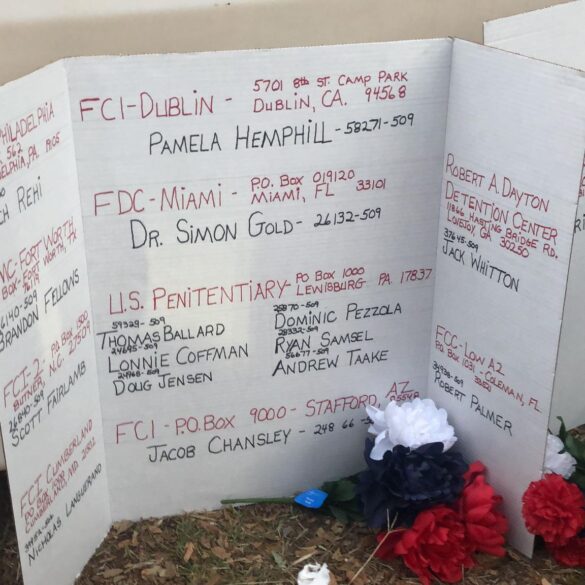 PHILADELPHIA
562
PA. 19105
REHL
FORT WORTH
FORT WORTH, TX
BRANDON FELLOWS
FCI-2 - PO BOX 1500
BUTNER, N.C. 27509
SCOTT FAIRLAMB
FCI CUMBERLAND
NICHOLAS LANGUERAND
FCI-DUBLIN - 5701 8th ST. CAMP PARK
DUBLIN, CA. 94568
PAMELA HEMPHILL - 58271-509
FDC-MIAMI - P.O. BOX 019120
MIAMI, FL 33101
DR. SIMON GOLD - 26132-509
U.S. PENITENTIARY - PO BOX 1000
LEWISBURG PA 17837
THOMAS BALLARD
LONNIE COFFMAN
DOUG JENSEN
DOMINIC PEZZOLA
RYAN SAMSEL
ANDREW TAAKE
FCI - P.O. BOX 9000 - STAFFORD, AZ
JACOB CHANSLEY - 248 66
ROBERT A. DAYTON
DETENTION CENTER
11866 HASTING BRIDGE RD.
LOVEJOY GA 30250
37645-509
JACK WHITTON
FCC-LOW A2
P.O. BOX 1031 - COLEMAN, FL
ROBERT PALMER